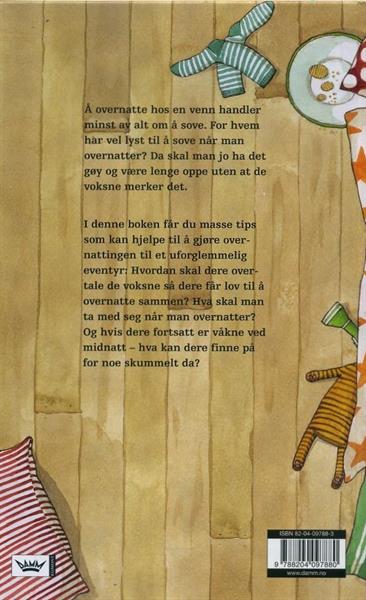 Å overnatte hos en venn handler
minst av alt om å sove. For hvem
har vel lyst til å sove når man
overnatter? Da skal man jo ha det
gøy og være lenge oppe uten at de
voksne merker det.
I denne boken får du masse tips
som kan hjelpe til å gjøre over-
nattingen til et uforglemmelig
eventyr: Hvordan skal dere over-
tale de voksne så dere får lov til å
overnatte sammen? Hva skal man
ta med seg når man overnatter?
Og hvis dere fortsatt er våkne ved
midnatt – hva kan dere finne på
for noe skummelt da?
ISBN 82-04-09788-3
9 788204 097880
www.damm.no
DAMM